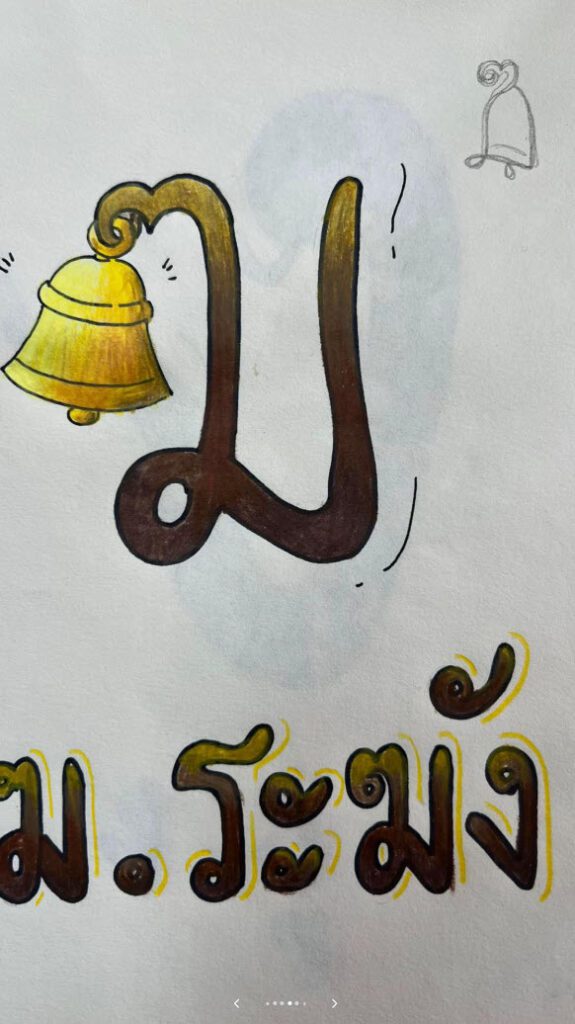 ฆ
ฆ.ระฆัง